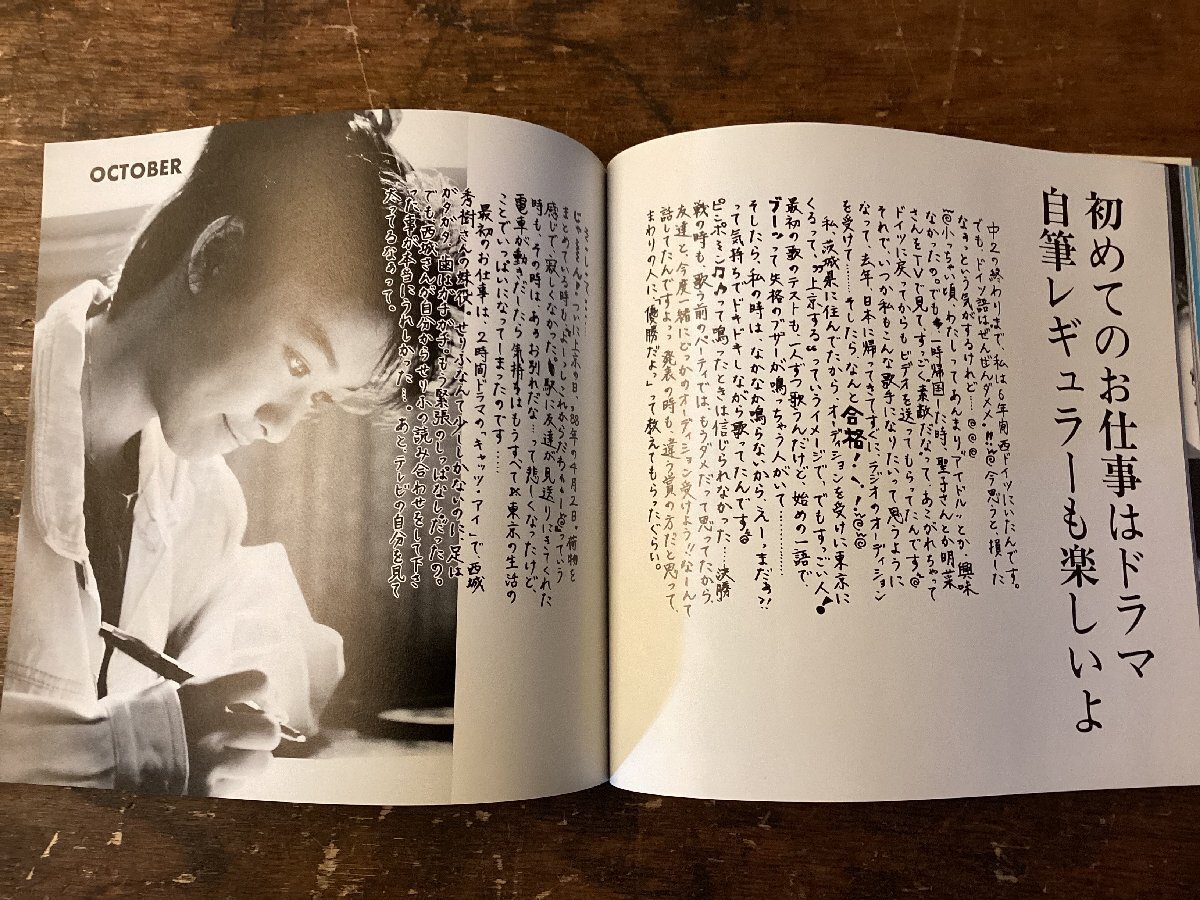 初めてのお仕事はドラマ
自筆レギュラーも楽しいよ
中2の終わりまで、私は6年間西ドイツにいたんです。
でも、ドイツ語はぜんぜんダメ〜!!今思うと、損した
なぁっという気がするけれど…
小っちゃい頃、わたしってあんまり"アイドル"とか、興味
なかったの。でも、一時帰国した時、聖子さんとか明菜
さんをTVで見て、すっごく素敵だなって、あこがれちゃって
ドイツに戻ってからもビデオを送ってもらってたんです。
それで、いつか私もこんな歌手になりたいって思うように
なって、去年、日本に帰ってきてすぐに、ラジオのオーディション
を受けて……そしたら、なんと合格!
私、茨城県に住んでたから、オーディションを受けに東京に
くるって、"上京する"っていうイメージで、でもすっごい人!
最初の歌のテストも、一人ずつ歌うんだけど、始めの一語で、
ブーッって失格のブザーが鳴っちゃう人がいて……
そしたら、私の時は、なかなか鳴らないから、えーっ、まだぁ?!
って気持ちでドキドキしながら歌ってたんです。
ピンポ〜ン♫って鳴ったときは信じられなかった…決勝
戦の時も、歌う前のスピーチでは、もうダメだって思ってたから、
友達と、今度一緒にどっかのオーディション受けよう!!なーんて
話してたんですよっ。発表の時も、違う賞の方だと思って、
まわりの人に、「優勝だよっ」って教えてもらったくらい。
OCTOBER
いつに上京の日、'88年の4月2日。荷物を
まとめている時も、よーっし、これからだわぁーっていう
感じで、寂しくなかった。駅に友達が見送りにきてくれた
時も、その時は、あぁお別れだな…って悲しくなったけど、
電車が動きだしたら、気持ちはもうすべて東京の生活の
ことでいっぱいになってしまったのです…
最初のお仕事は、2時間ドラマの、"キャッツ・アイ"で、西城
秀樹さんの妹役。せりふなんて少ーししかないのに、足は
ガタガタ、歯はガチガチ。もう緊張のしっぱなしだったの。
でも、西城さんが自分からせりふの読み合わせをして下さ
った事が本当にうれしかった…。あと、テレビの自分を見て
太ってるなぁって。